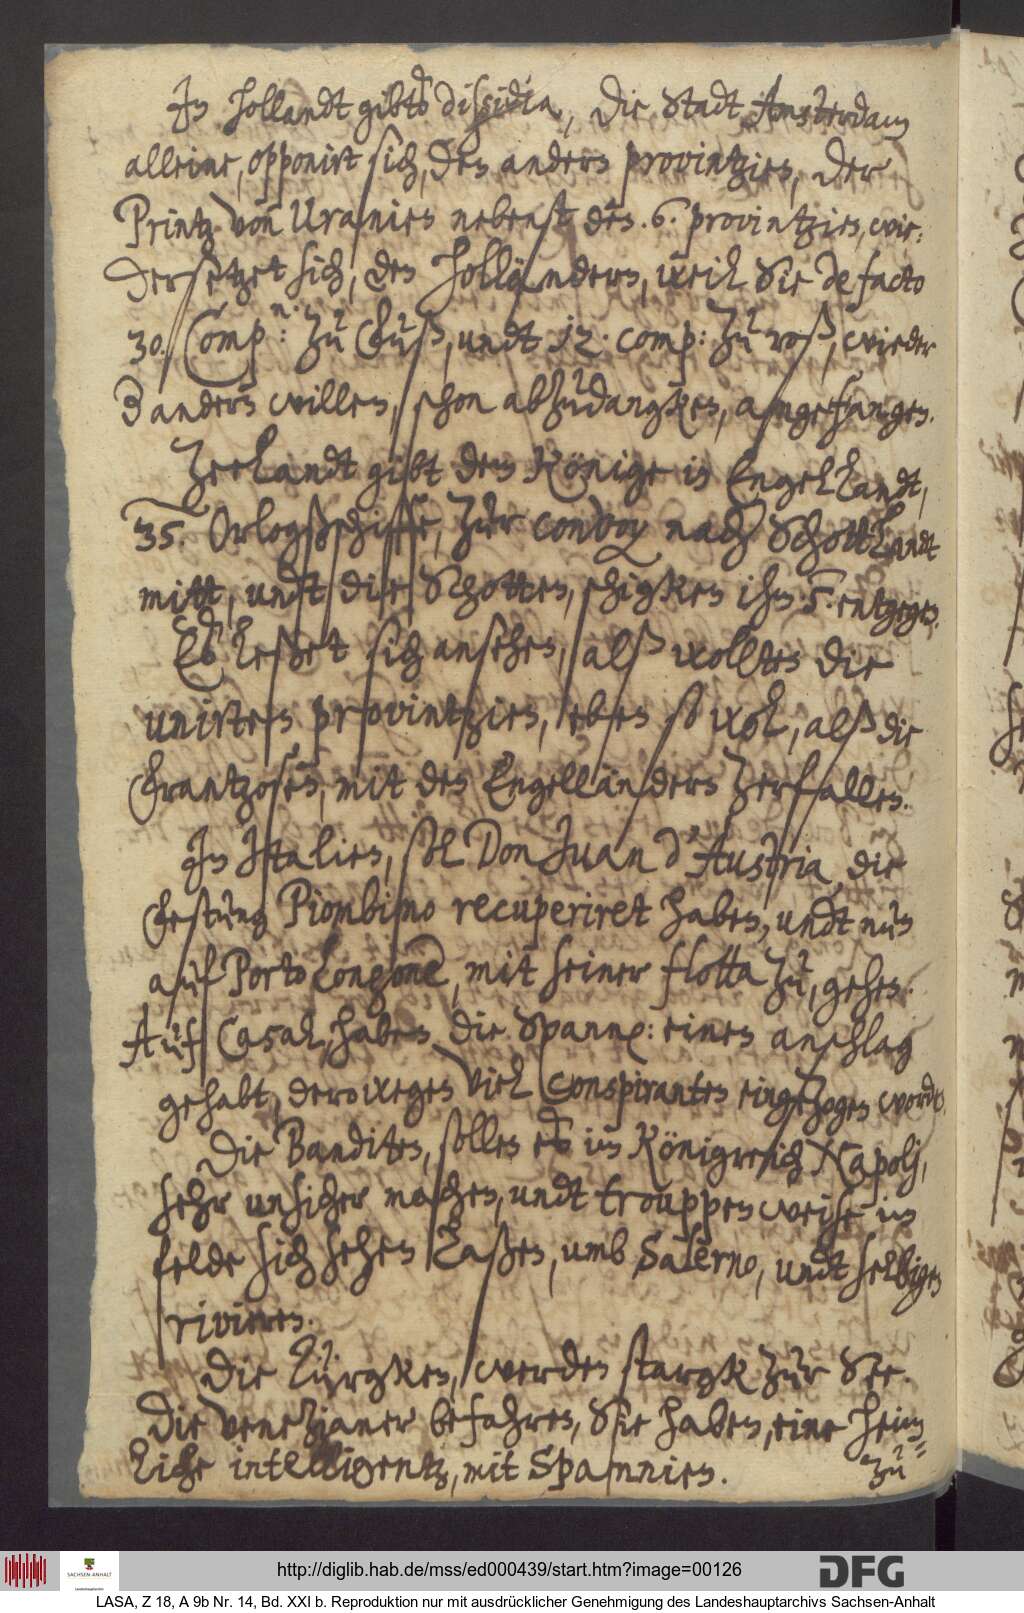 In Hollandt gibts dissidia, die Stadt Amsterdam
alleine, opponirt sich, den andern provintzien, der
Printz von Uranien nebenst den .6. provintzien, wie-
dersetzet sich, den Holländern, weil Sie de facto
30. Comp.n: zu Fuß, undt 12. comp: zu roß, wieder
3 andern willen, schon abzudangken, angefangen.
Zeelandt gibt dem Könige in Engellandt,
35. Orlogsschiffe, zur convoy nach Schottlandt
mitt, undt die Schotten, schigken ihm 5. entgegen.
Es leßet sich ansehen, alß wollten die
unirten provintzien, eben so wol, alß die
Frantzosen, mit den Engelländern zerfallen.
In Italien, sol Don Juan d'Austria, die
Festung Piombino recuperiret haben, undt nun
auf Porto Longone, mit seiner flotta zu, gehen.
Auf Casal, haben die Spann: einen anschlag
gehabt, derowegen viel Conspiranten eingezogen word:
Die Banditen, sollen es im Königreich Napolj,
sehr unsicher machen, undt trouppenweise im
felde sich sehen laßen, umb Salerno, undt selbigen
rivieren.
Die Türgken, werden stargk zur See.
Die Venezianer befahren, Sie haben, eine heim-
liche intelligentz, mit Spannien.
zu=
http://diglib.hab.de/mss/ed000439/start.htm?image=00126
DFG
SACHSEN-ANHALT
LASA, Z 18, A 9b Nr. 14, Bd. XXI b. Reproduktion nur mit ausdrücklicher Genehmigung des Landeshauptarchivs Sachsen-Anhalt